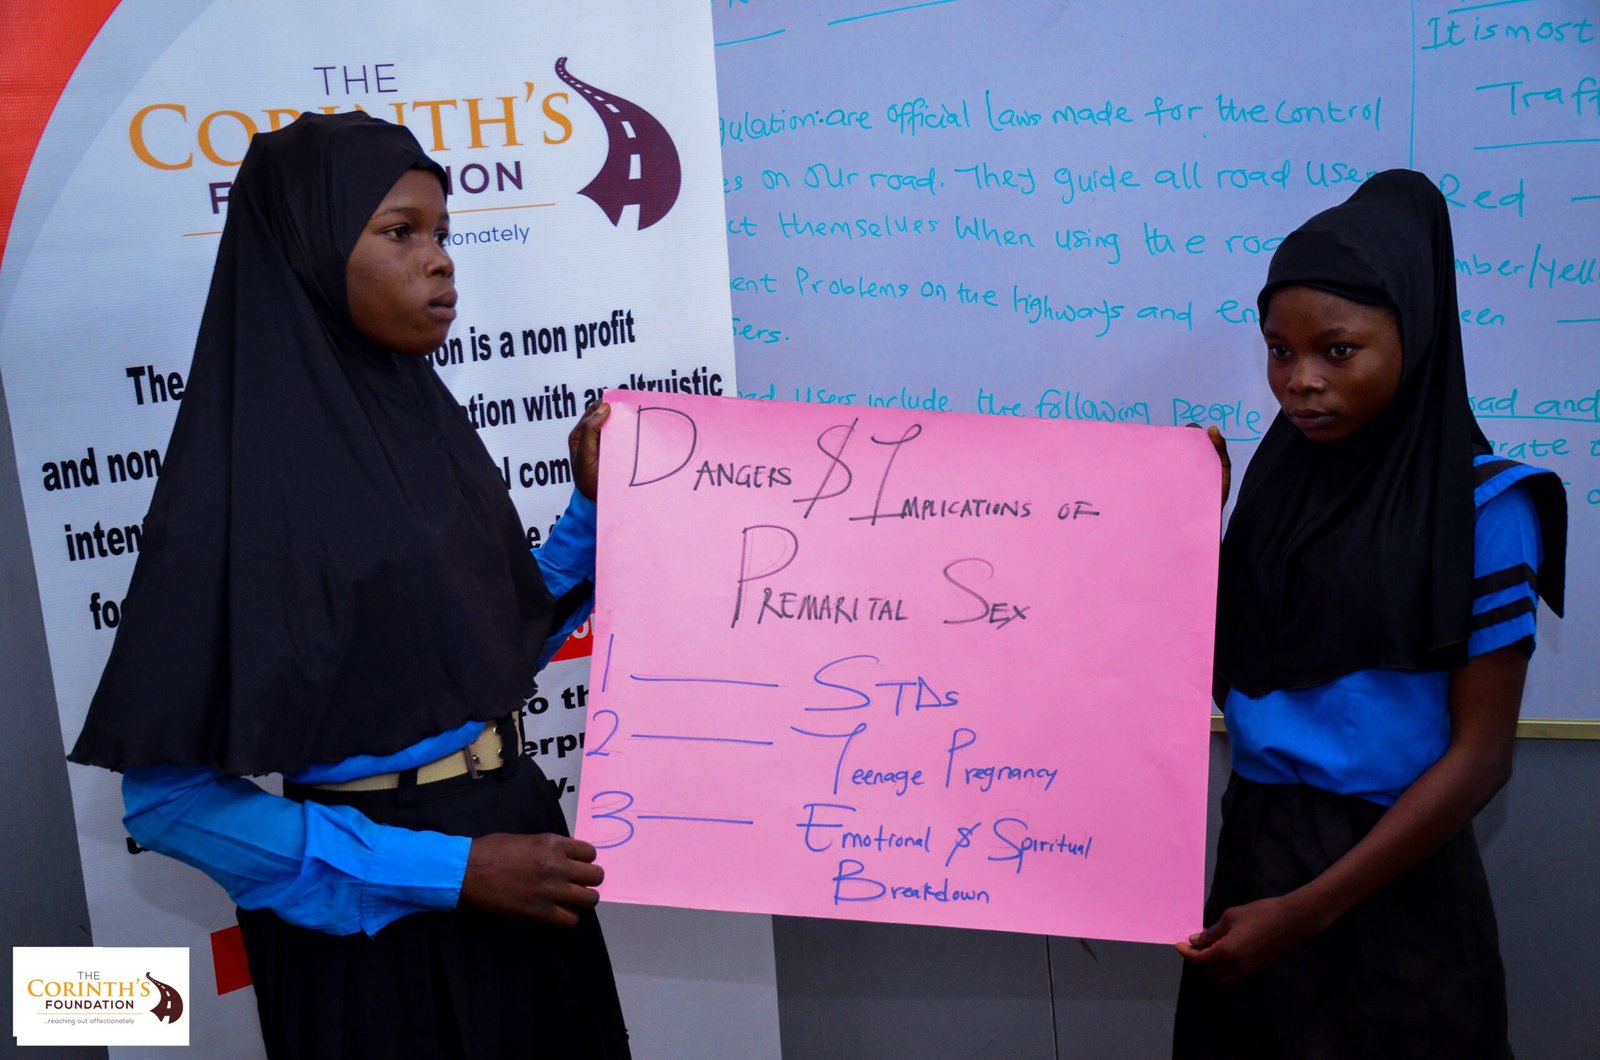 THE
CORINTH'S
ION
ionately
on is a non profit
The
tion with an altruistic
and non
l com
inten
fo
to th
erp
y.
gulation: are official laws made for the control
es on our road. They guide all road User
ct themselves When using the roa
ent Problems on the highways and en
ers.
ad Users include the following People
It is most
Traff
Red
mber/Yell
een
oad and
rate
DANGERS & IMPLICATIONS OF
PREMARITAL SEX
1 STDs
2 Teenage Pregnancy
3 Emotional & Spiritual
Breakdown
THE
CORINTH'S
FOUNDATION
...reaching out affectionately